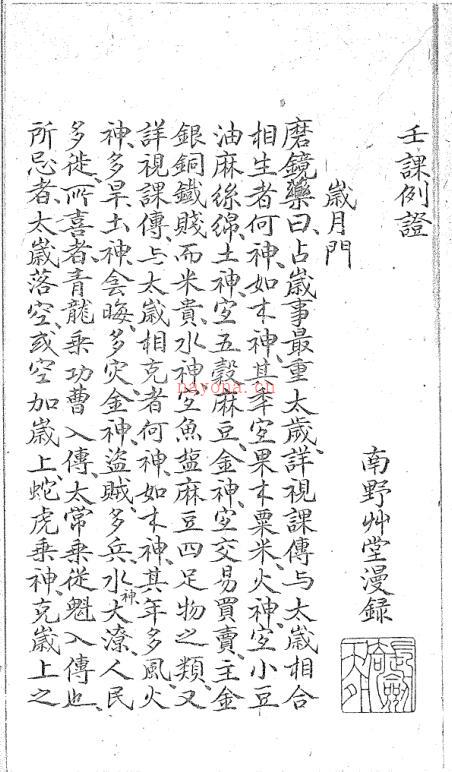 壬課例證
南野艸堂漫録
歲月門
磨鏡藥曰、占歲事最重太歲、詳視課傳与太歲相合
相生者何神、如木神其年宜果木粟米、火神宜小豆
油麻絲綿、土神宜五穀麻豆、金神宜交易買賣、主金
銀銅鐵賤而米貴、水神宜魚盐麻豆四足物之類、又
詳視課傳与太歲相克者何神、如木神其年多風、火
神多旱、土神雲晦多灾、金神盜賊多兵、水神大潦、人民
多徙、所喜者青龍乘功曹入傳、太常乘從魁入傳也、
所忌者太歲落空、或空加歲上、蛇虎乘神克歲上之
nayona.cn